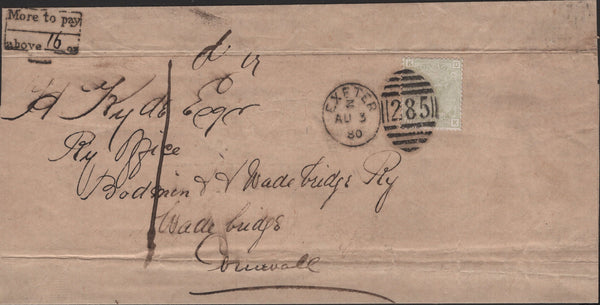 More to pay
above 16 oz
EXETER
Z
AU 3
80
285
H Kyd Esqr
Ry Office
Bodmin & Wadebridge Ry
Wadebridge
Cornwall